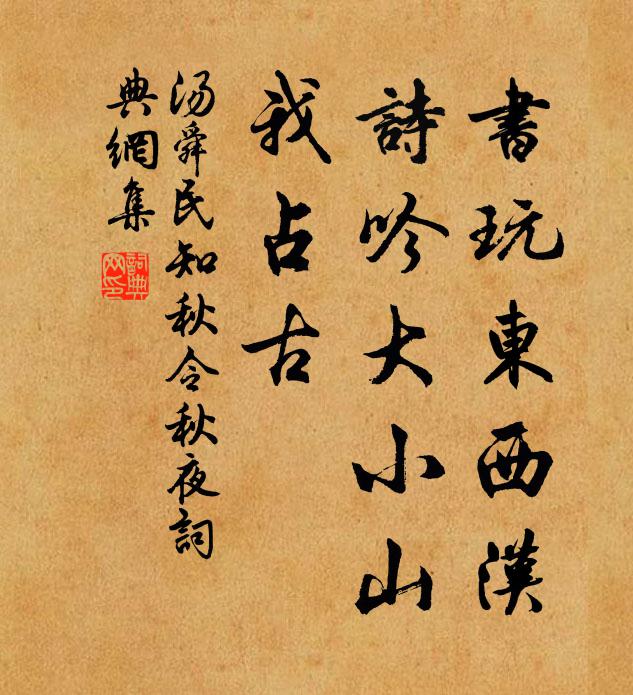 書玩東西漢
詩吟大小山
我占古
汤舜民知秋令秋夜詞
典網集
詞典
网印